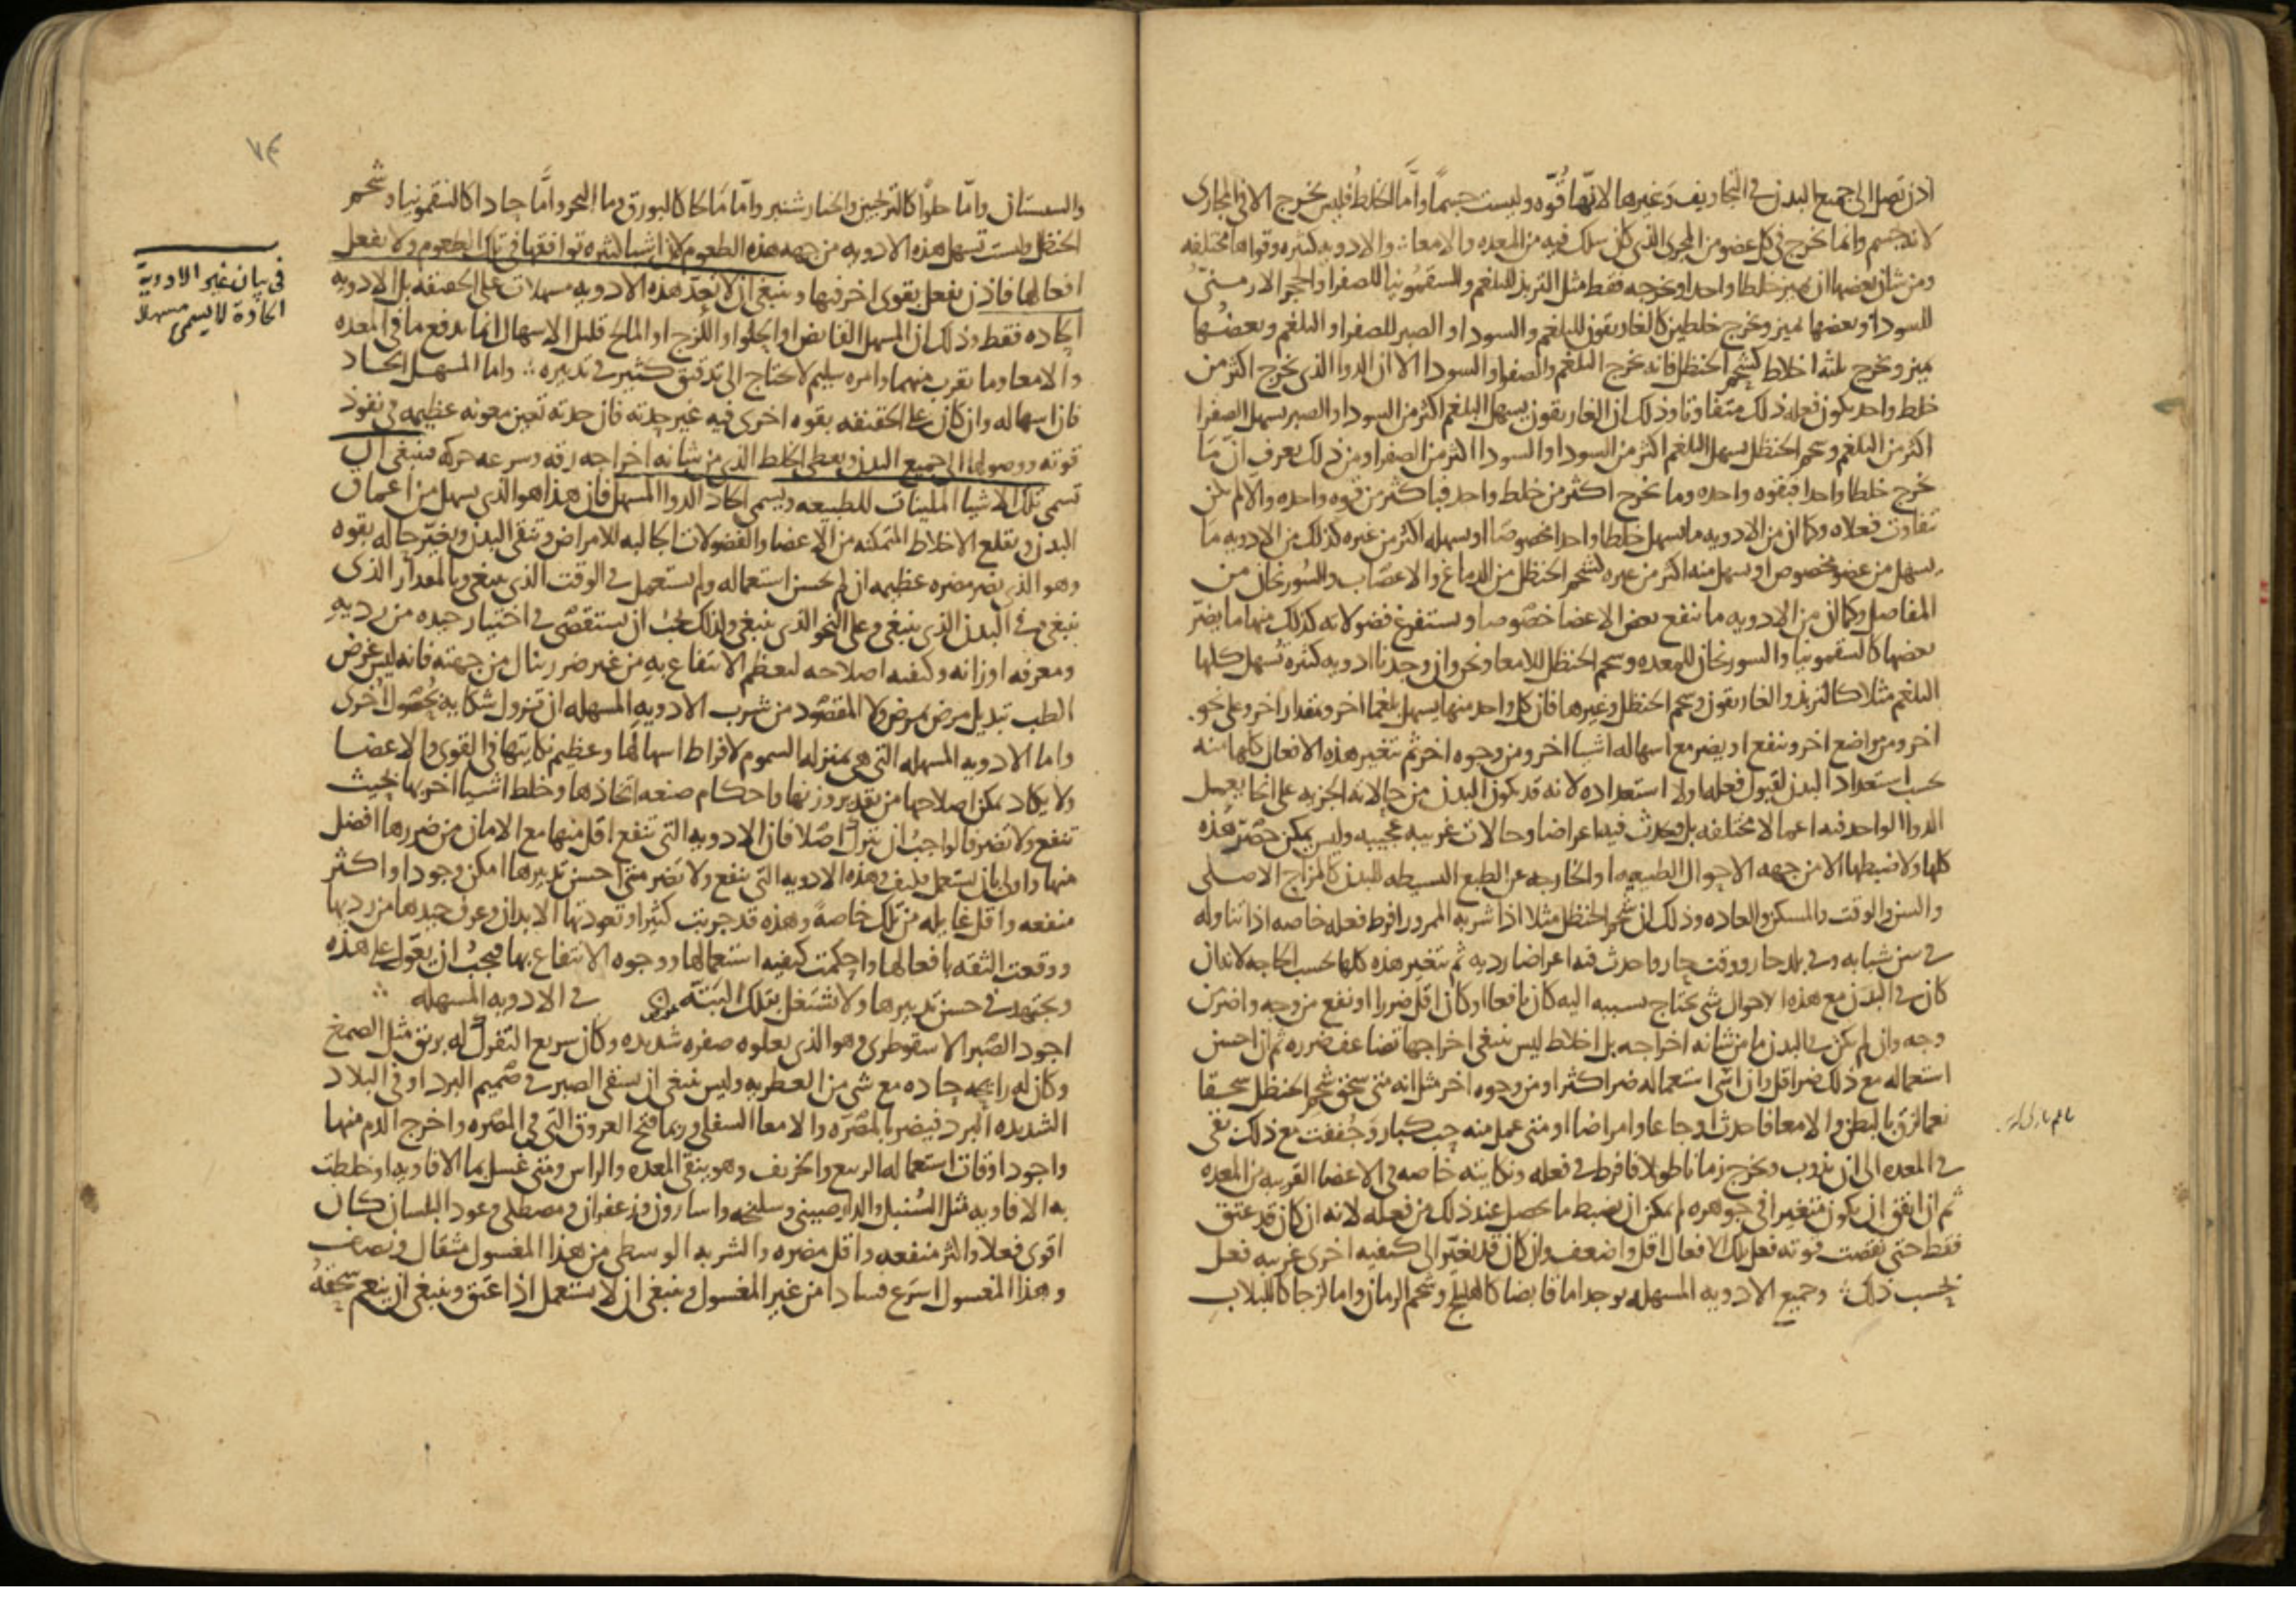 اذن تصل الى جميع البدن في التجاويف وغيرها لانها قوه وليست جسما واما الخلط فليس يخرج الا في المجاري
لانه جسم وانما يخرج في كل عضو من المجرى الذي كان سلك فيه من المعده والامعا والادويه كثيره وقواها مختلفه
ومن شان بعضها ان يميز خلطا واحدا ويخرجه فقط مثل التربد للبلغم والسقمونيا للصفرا والحجر الارمني
للسودا وبعضها يميز ويخرج خلطين كالغاريقون للبلغم والسودا والصبر للصفرا والبلغم وبعضها
يميز ويخرج ثلثه اخلاط كشحم الحنظل فانه يخرج البلغم والصفرا والسودا الا ان الدوا الذي يخرج اكثر من
خلط واحد يكون فعله ذلك متفاوتا وذلك ان الغاريقون يسهل البلغم اكثر من السودا والصبر يسهل الصفرا
اكثر من البلغم وشحم الحنظل يسهل البلغم اكثر من السودا والسودا اكثر من الصفرا ومن ذلك يعرف ان ما
يخرج خلطا واحدا فبقوه واحده وما يخرج اكثر من خلط واحد فباكثر من قوه واحده والا لم يكن
تفاوت فعلاه وكما ان من الادويه ما يسهل خلطا واحدا مخصوصا او يسهله اكثر من غيره كذلك من الادويه ما
يسهل من عضو مخصوص او يسهل منه اكثر من غيره كشحم الحنظل من الدماغ والاعصاب والسورنجان من
المفاصل وكما ان من الادويه ما ينفع بعض الاعضا خصوصا ويستفرغ فضولاته كذلك منها ما يضر
بعضها كالسقمونيا والسورنجان للمعده وشحم الحنظل للامعا ونحن وان وجدنا ادويه كثيره تسهل كلها
البلغم مثلا كالتربد والغاريقون وشحم الحنظل وغيرها فان كل واحد منها يسهل بلغما اخر وبمقدار اخر وعلى نحو
اخر ومن مواضع اخر وينفع او يضر مع اسهاله اشيا اخر ومن وجوه اخر ثم تتغير هذه الافعال كلها منه
بحسب استعداد البدن لقبول فعلها ولا استعداده لانه قد يكون البدن من حالاته الجزيه على انحا يعمل
الدوا الواحد فيه اعمالا مختلفه بل ويحدث فيه اعراضا وحالات غريبه عجيبه وليس يمكن حصر هذه
كلها ولا ضبطها الا من جهه الاحوال الطبيعيه او الخارجه عن الطبع البسيطه للبدن كالمزاج الاصلي
والسن والوقت والمسكن والعاده وذلك ان شحم الحنظل مثلا اذا شربه المحرور افرط فعله خاصه اذا تناوله
في سن شبابه وفي بلد حار ووقت حار واحدث فيه اعراضا رديه ثم تتغير هذه كلها بحسب الحاجه لانه ان
كان في البدن مع هذه الاحوال شي يحتاج بسببه اليه كان نافعا او كان اقل ضررا او نفع من وجه واضر من
وجه وان لم يكن في البدن ما من شانه اخراجه بل اخلاط ليس ينبغي اخراجها تضاعف ضرره ثم ان احسن
استعماله مع ذلك ضر اقل وان اسي استعماله ضر اكثر او من وجوه اخر مثل انه متى سحق شحم الحنظل سحقا
نعما لزق بالبطن والامعا فاحدث اوجاعا وامراضا او متى عمل منه حب كبار وجففت مع ذلك بقي
في المعده الى ان يذوب ويخرج زمانا طويلا فافرط في فعله ونكايته خاصه في الاعضا القريبه من المعده
ثم ان اتفق ان يكون متغيرا في جوهره لم يمكن ان يضبط ما يحصل عند ذلك من فعله لانه ان كان قد عتق
فقط حتى نقصت قوته فعل تلك الافعال اقل واضعف وان كان قد تغير الى كيفيه اخرى غريبه فعل
بحسب ذلك وجميع الادويه المسهله يوجد اما قابضا كالهليلج وشحم الرمان واما لزجا كاللبلاب
والسبستان واما حلوا كالترنجبين والخيارشنبر واما مالحا كالبورق وما البحر واما حادا كالسقمونيا وشحم
الحنظل وليست تسهل هذه الادويه من جهه هذه الطعوم لان اشيا كثيره توافقها في تلك الطعوم ولا تفعل
افعالها فاذن تفعل بقوى اخر فيها وينبغي ان لا تعد هذه الادويه مسهلات على الحقيقه بل الادويه
الحاده فقط وذلك ان المسهل القابض او الحلو او اللزج او المالح قليل الاسهال انما يدفع ما في المعده
والامعا وما يقرب منهما وامره سليم لا يحتاج الى تدقيق كثير في تدبيره واما المسهل الحاد
فان اسهاله وان كان على الحقيقه بقوه اخرى فيه غير حدته فان حدته تعين معونه عظيمه في نفوذ
قوته ووصولها الى جميع البدن ويعطي الخلط الذي من شانه اخراجه رقه وسرعه حركه فينبغي ان
تسمى تلك الاشيا الملينات للطبيعه ويسمى الحاد الدوا المسهل فان هذا هو الذي يسهل من اعماق
البدن ويقلع الاخلاط المتمكنه من الاعضا والفضولات الجالبه للامراض وتنقي البدن ويغير حاله بقوه
وهو الذي يضر مضره عظيمه ان لم يحسن استعماله ولم يستعمل في الوقت الذي ينبغي وبالمقدار الذي
ينبغي وفي البدن الذي ينبغي وعلى النحو الذي ينبغي ولذلك يجب ان يستقصى في اختيار جيده من رديه
ومعرفه اوزانه وكيفيه اصلاحه ليعظم الانتفاع به من غير ضرر ينال من جهته فانه ليس غرض
الطب تبديل مرض بمرض ولا المقصود من شرب الادويه المسهله ان تزول شكايه بحصول اخرى
واما الادويه المسهله التي هي بمنزله السموم لافراط اسهالها وعظيم نكايتها في القوى والاعضا
ولا يكاد يمكن اصلاحها من تقدير وزنها واحكام صنعه اتخاذها وخلط اشيا اخر بها بحيث
تنفع ولا تضر فالواجب ان تترك اصلا فان الادويه التي تنفع اقل منها مع الامان من ضررها افضل
منها واولى بان يستعمل وكيف وهذه الادويه التي تنفع ولا تضر متى احسن تدبيرها امكن وجودا واكثر
منفعه واقل غايله من تلك خاصة وهذه قد جربت كثيرا وتعودتها الابدان وعرف جيدها من رديها
ووقعت الثقه بافعالها واحكمت كيفيه استعمالها ووجوه الانتفاع بها فيجب ان يعول على هذه
ويجتهد في حسن تدبيرها ولا تشتغل بتلك البتة في الادويه المسهله
اجود الصبر الاسقوطري وهو الذي يعلوه صفره شديده وكان سريع التفرك له بريق مثل الصمغ
وكان له رايحه حاده مع شي من العطريه وليس ينبغي ان يسقى الصبر في صميم البرد او في البلاد
الشديده البرد فيضر بالمصره والامعا السفلى وربما فتح العروق التي في المصره واخرج الدم منها
واجود اوقات استعماله الربيع والخريف وهو ينقي المعده والراس ومتى غسل بما الافاويه او خلطت
به الافاويه مثل السنبل والدارصيني وسليخه واسارون وزعفران ومصطكى وعود البلسان كان
اقوى فعلا واكثر منفعه واقل مضره والشربه الوسطى من هذا المغسول مثقال ونصف
وهذا المغسول اسرع فسادا من غير المغسول وينبغي ان لا يستعمل اذا عتق وينبغي ان ينعم سحقه
في بيان غير الادوية
الحادة لا يسمى مسهلا